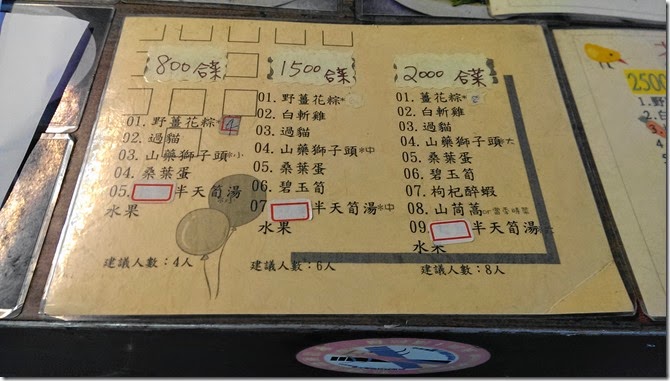 800 合菜
01. 野薑花粽*4
02. 過貓
03. 山藥獅子頭*小
04. 桑葉蛋
05. 半天筍湯
水果
建議人數：4人
1500 合菜
01. 野薑花粽*
02. 白斬雞
03. 過貓
04. 山藥獅子頭*中
05. 桑葉蛋
06. 碧玉筍
07 半天筍湯*中
水果
建議人數：6人
2000 合菜
01. 薑花粽*
02. 白斬雞
03. 過貓
04. 山藥獅子頭*大
05. 桑葉蛋
06. 碧玉筍
07. 枸杞醉蝦
08. 山茼蒿or當季時蔬
09. 半天筍湯
水果
建議人數：8人
2500
1.野
2.白
3.
4.